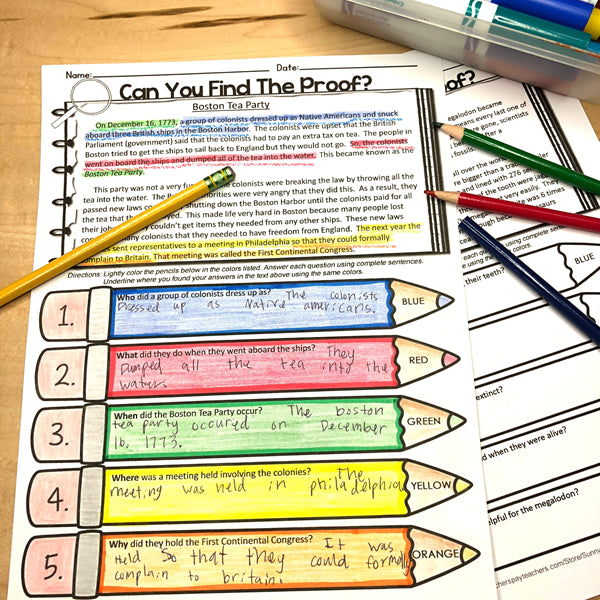 Name: Date:
Can You Find The Proof?
Boston Tea Party
On December 16, 1773, a group of colonists dressed up as Native Americans and snuck
aboard three British ships in the Boston Harbor. The colonists were upset that the British
Parliament (government) said that the colonists had to pay an extra tax on tea. The people in
Boston tried to get the ships to sail back to England but they would not go. So, the colonists
went on board the ships and dumped all of the tea into the water. This became known as the
Boston Tea Party.
This party was not a very fun colonists were breaking the law by throwing all the
tea into the water. The authorities were very angry that they did this. As a result, they
passed new laws shutting down the Boston Harbor until the colonists paid for all
the tea that they This made life very hard in Boston because many people lost
their couldn't get items they needed from any other ships. These new laws
many colonists that they needed to have freedom from England. The next year the
sent representatives to a meeting in Philadelphia so that they could formally
complain to Britain. That meeting was called the First Continental Congress.
Directions: Lightly color the pencils below in the colors listed. Answer each question using complete sentences.
Underline where you found your answers in the text above using the same colors.
1. Who did a group of colonists dress up as? The colonists
Dressed up as Native americans.
BLUE
2. What did they do when they went aboard the ships? They
Dumped all the tea into the
water.
RED
3. When did the Boston Tea Party occur? The boston
tea party occured on December
16. 1773.
GREEN
4. Where was a meeting held involving the colonies? The
meeting was held in philadelphia
YELLOW
5. Why did they hold the First Continental Congress? It was
Held so that they could formally
complain to britain.
ORANGE
of?
megalodon became
means every last one of
being gone, scientists
fossils over a
all over the world
bigger than a
and lined with 276
the tooth were jagged
very easily. They
because whales
was 6 ours
using complete sente
colors.
their teeth?
BLUE
extinct?
d when they were alive?
lpful for the megalodon?
herspayteachers.com/Store/Sunny